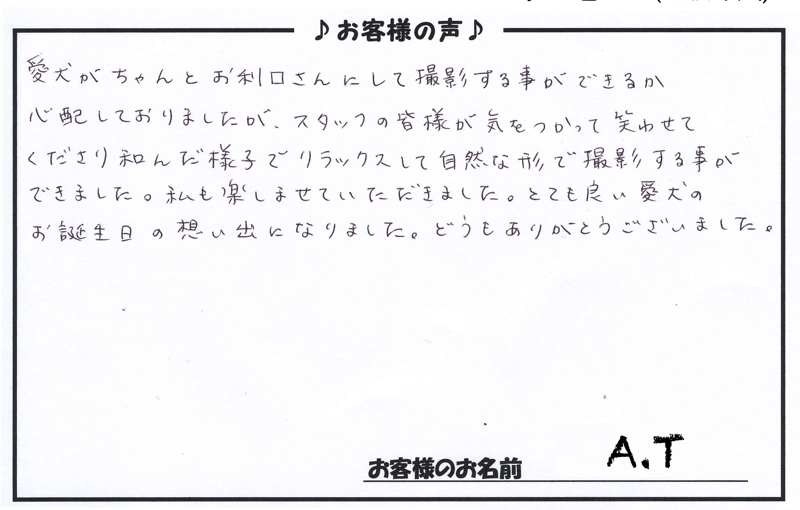 ♪お客様の声♪
愛犬がちゃんとお利口さんにして撮影する事ができるか
心配しておりましたが、スタッフの皆様が気をつかって笑わせて
くださり和んだ様子でリラックスして自然な形で撮影する事が
できました。私も楽しませていただきました。とても良い愛犬の
お誕生日の想い出になりました。どうもありがとうございました。
お客様のお名前 A.T